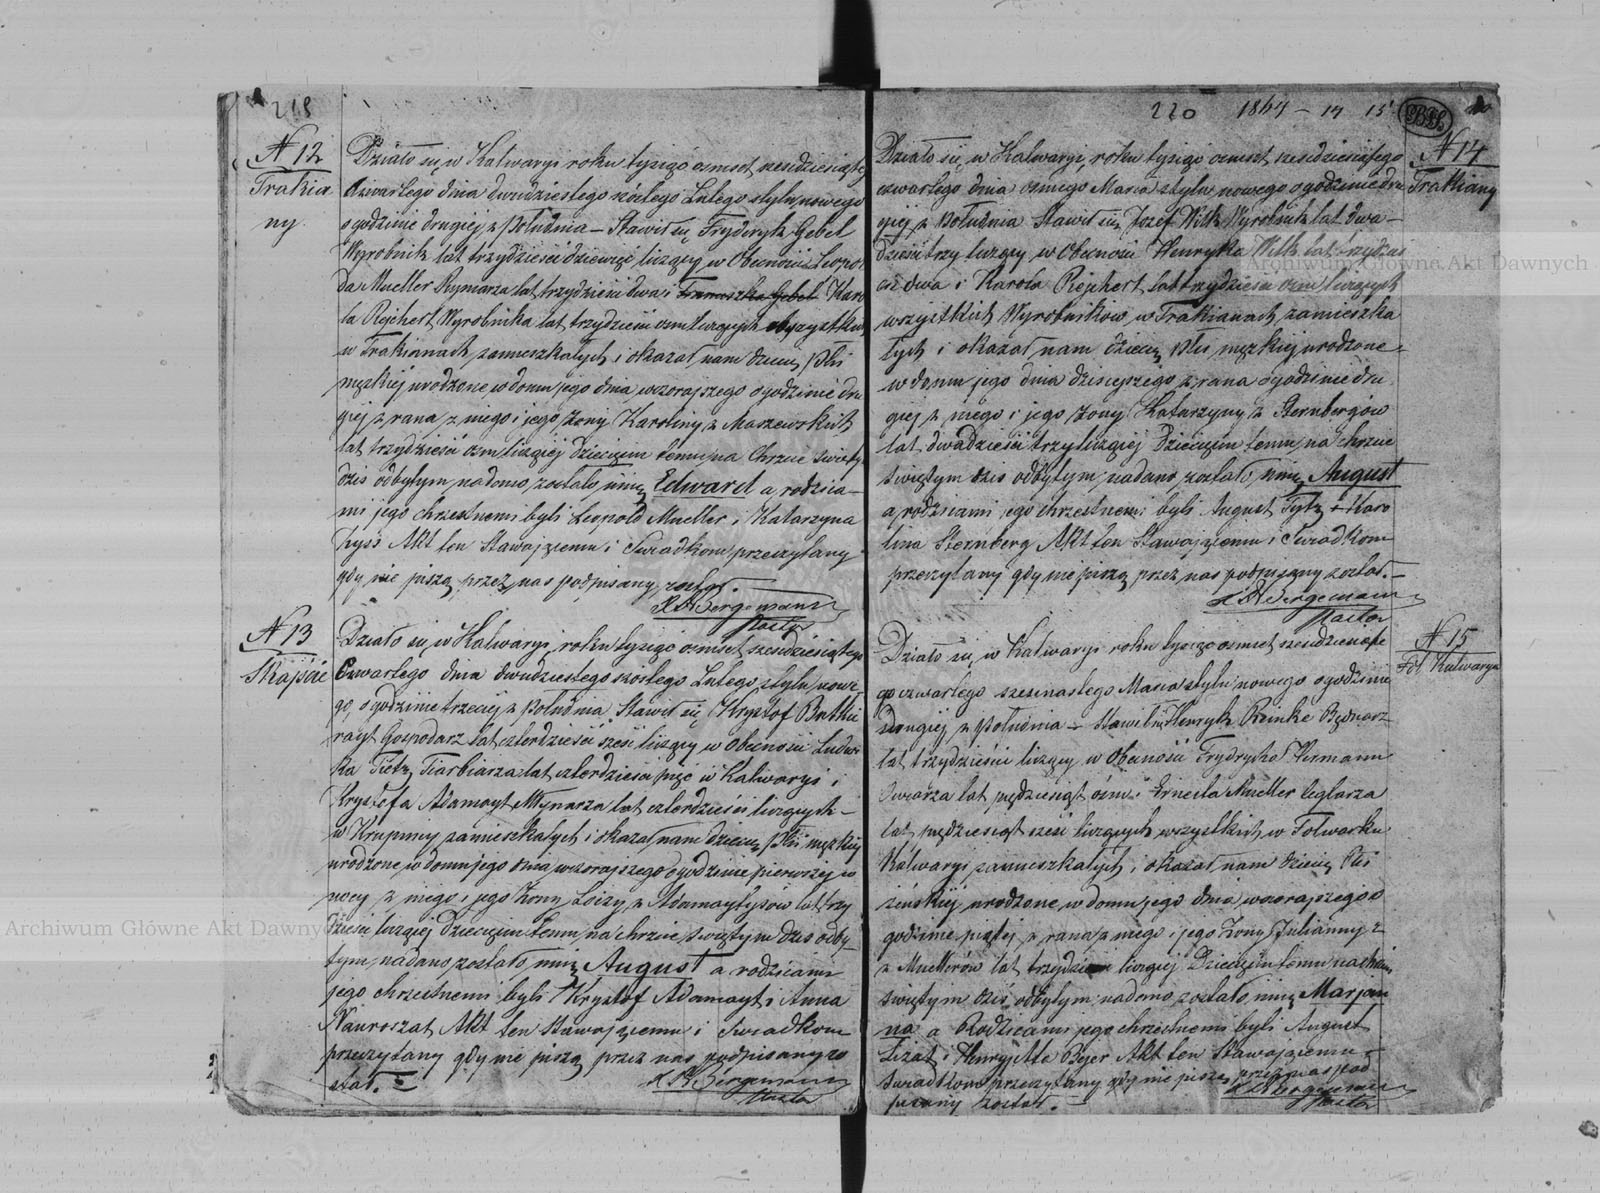 218
N 12
Trakia
ny
Działo się w Kalwaryi roku tysiąc osmset szesdziesiąte
czwartego dnia dwudziestego szóstego Lutego stylu nowego
o godzinie drugiej z południa – Stawił się Fryderyk Gebel
Wyrobnik lat trzydzieści dziewięć liczący w Obecności Leopol
da Mueller Rymarza lat trzydzieści dwa i Franciszka Gebel Karo
la Rejchert Wyrobnika lat trzydzieści osm liczących
w Trakianach zamieszkałych i okazał nam dziecię płci
męzkiej urodzone w domu jego dnia wczorajszego o godzinie dru
giej z rana z niego i jego żony Karoliny z Maszewskich
lat trzydzieści osm liczącej Dziecięciu temu na Chrzcie święty
dziś odbytym nadano zostało imię Edward a rodzica–
mi jego chrzestnemi byli Leopold Mueller i Katarzyna
Hyss Akt ten Stawającemu i Swiadkom przeczytany
gdy nie piszą przez nas podpisany został.
K H Bergemann
Pastor
N 13
Skajście
Działo się w Kalwaryi roku tysiąc osmset szesdziesiątego
Czwartego dnia dwudziestego szóstego Lutego stylu nowe
go, o godzinie trzeciej z południa Stawił się Krysztof Butku
rayt Gospodarz lat czterdzieści sześć liczący w obecności Ludwi
ka Tietz Farbiarza lat czterdzieści pięć w Kalwaryi i
Krysztofa Adamayt Młynarza lat czterdzieści liczących –
w Krupnicy zamieszkałych i okazał nam dziecię płci męzkiej
urodzone w domu jego dnia wczorajszego o godzinie pierwszej w
nocy z niego i jego żony Loizy z Adamaytysów lat trzy
dzieści liczącej Dziecięciu temu na chrzcie świętym dziś odby
tym nadano zostało imię August a rodzicami
jego chrzestnemi byli Krysztof Adamayt i Anna
Nauroszat Akt ten stawającemu i Swiadkom
przeczytany gdy nie piszą przez nas podpisany zo
stał.
K H Bergemann
Pastor
220 1864 – 14 15
N 14
Trakiany
Działo się w Kalwaryi, roku tysiąc osmset szesdziesiątego
czwartego dnia osmego Marca stylu nowego o godzinie dru
giej z południa Stawił się Jozef Wilk Wyrobnik lat dwa–
dzieści trzy liczący w Obecności Henryka Wilk lat trzydzieś
ci dwa i Karola Rejchert lat trzydzieści osm liczących
wszystkich Wyrobników w Trakianach zamieszka
łych i okazał nam dziecię płci męzkiej urodzone
w domu jego dnia dzisiejszego z rana o godzinie dru
giej z niego i jego żony Katarzyny z Sternbergów
lat dwadzieścia trzy liczącej Dziecięciu temu na chrzcie
świętym dziś odbytym nadano zostało imię August
a rodzicami jego chrzestnemi byli August Tytz i Karo
lina Sternberg Akt ten Stawającemu i Swiadkom
przeczytany gdy nie piszą przez nas podpisany został. –
K H Bergemann
Pastor
N 15
Fol Kalwarya
Działo się w Kalwaryi roku tysiąc osmset szesdziesiąte
go czwartego szesnastego Marca stylu nowego o godzinie
drugiej z południa – Stawił się Henryk Reinke Bednarz
lat trzydzieści liczący w Obecności Frydrycha Hermann
Owczarza lat pędziesiąt ośm i Ernesta Mueller ceglarza
lat pędziesiąt sześć liczących wszystkich w Folwarku
Kalwaryi zamieszkałych, i okazał nam dziecię Płci
żeńskiej urodzone w domu jego dnia wczorajszego o
godzinie piątej z rana z niego i jego żony Julianny
z Muellerów lat trzydzieści liczącej Dziecięciu temu na chrzcie
świętym dziś odbytym nadano zostało imię Marjan
na a Rodzicami jego chrzestnemi byli August
Lizat i Henryjetta Bejer Akt ten Stawającemu i
Swiadkom przeczytany gdy nie piszą przez nas pod
pisany został. –
K H Bergemann
Pastor
Archiwum Główne Akt Dawnych
Archiwum Główne Akt Dawnych